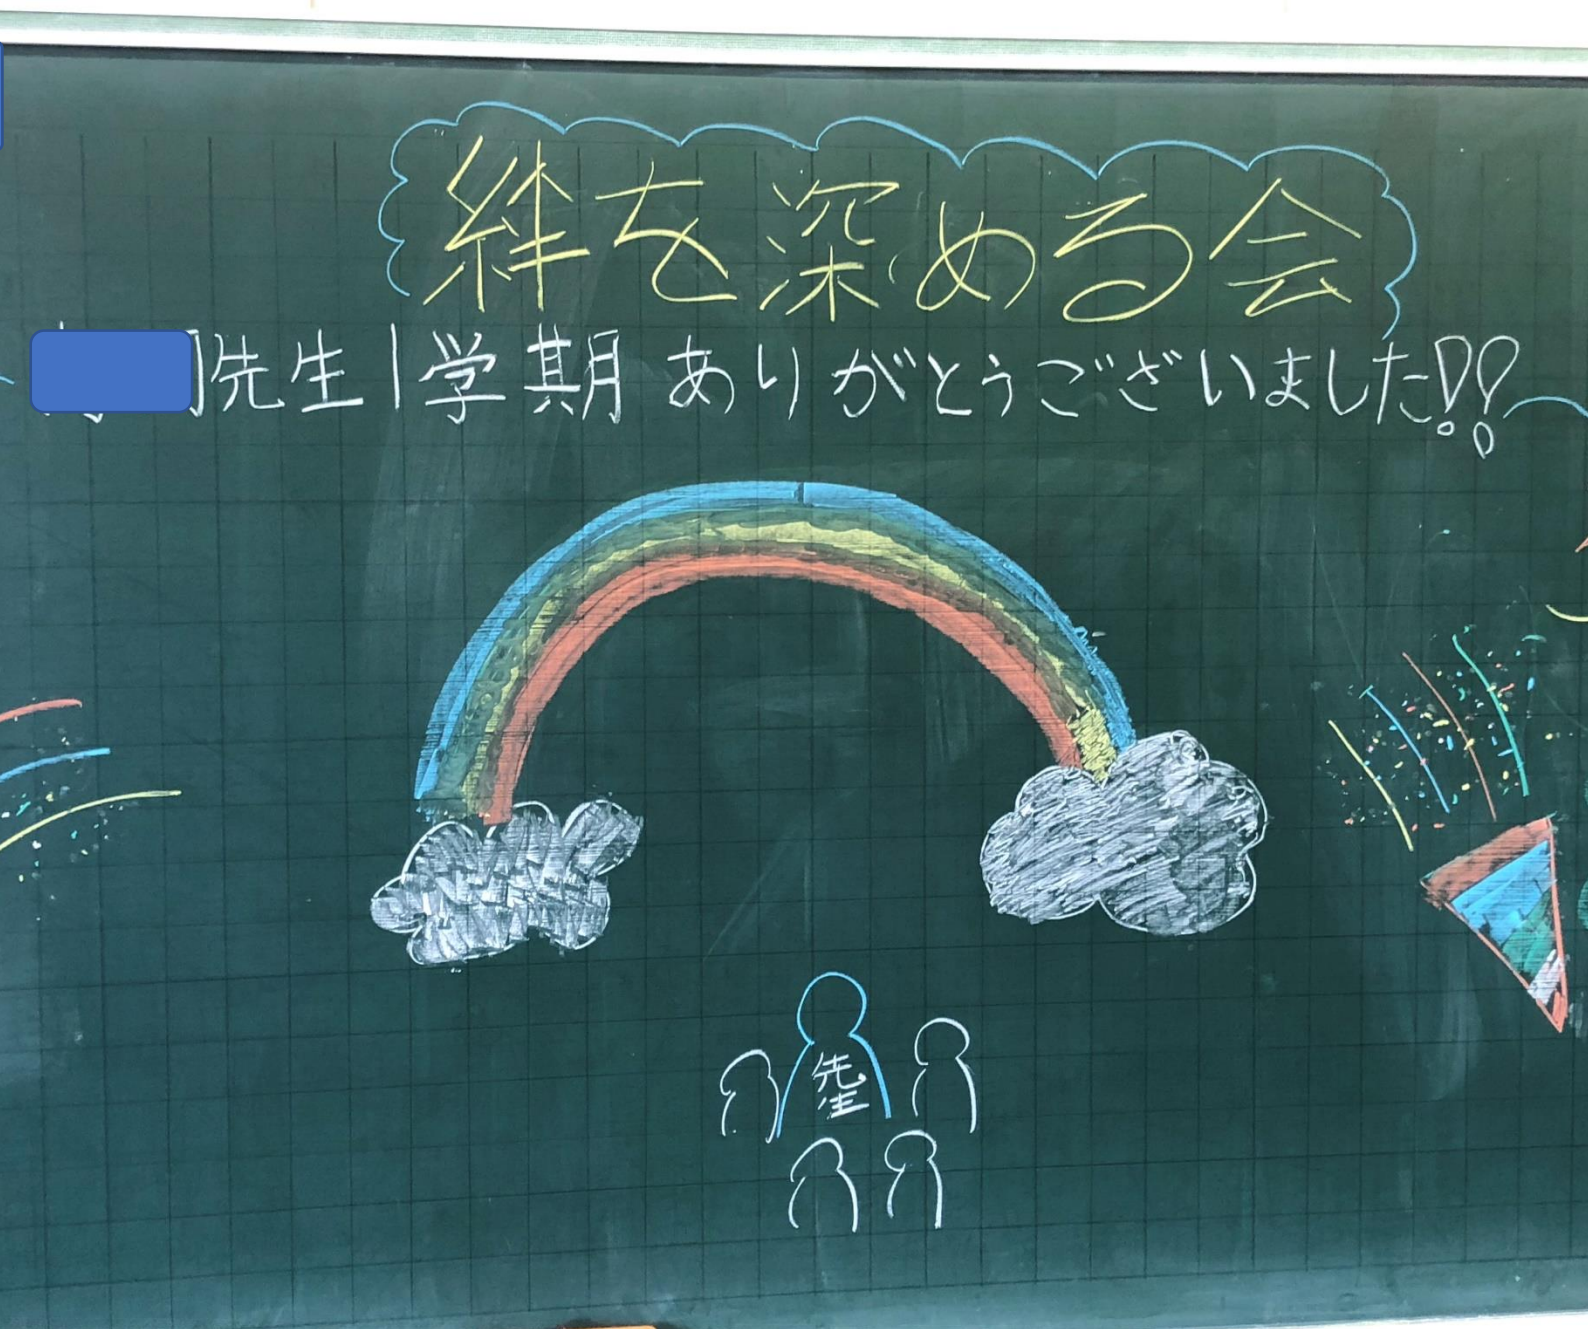 絆を深める会
先生1学期 ありがとうございました!!
先生